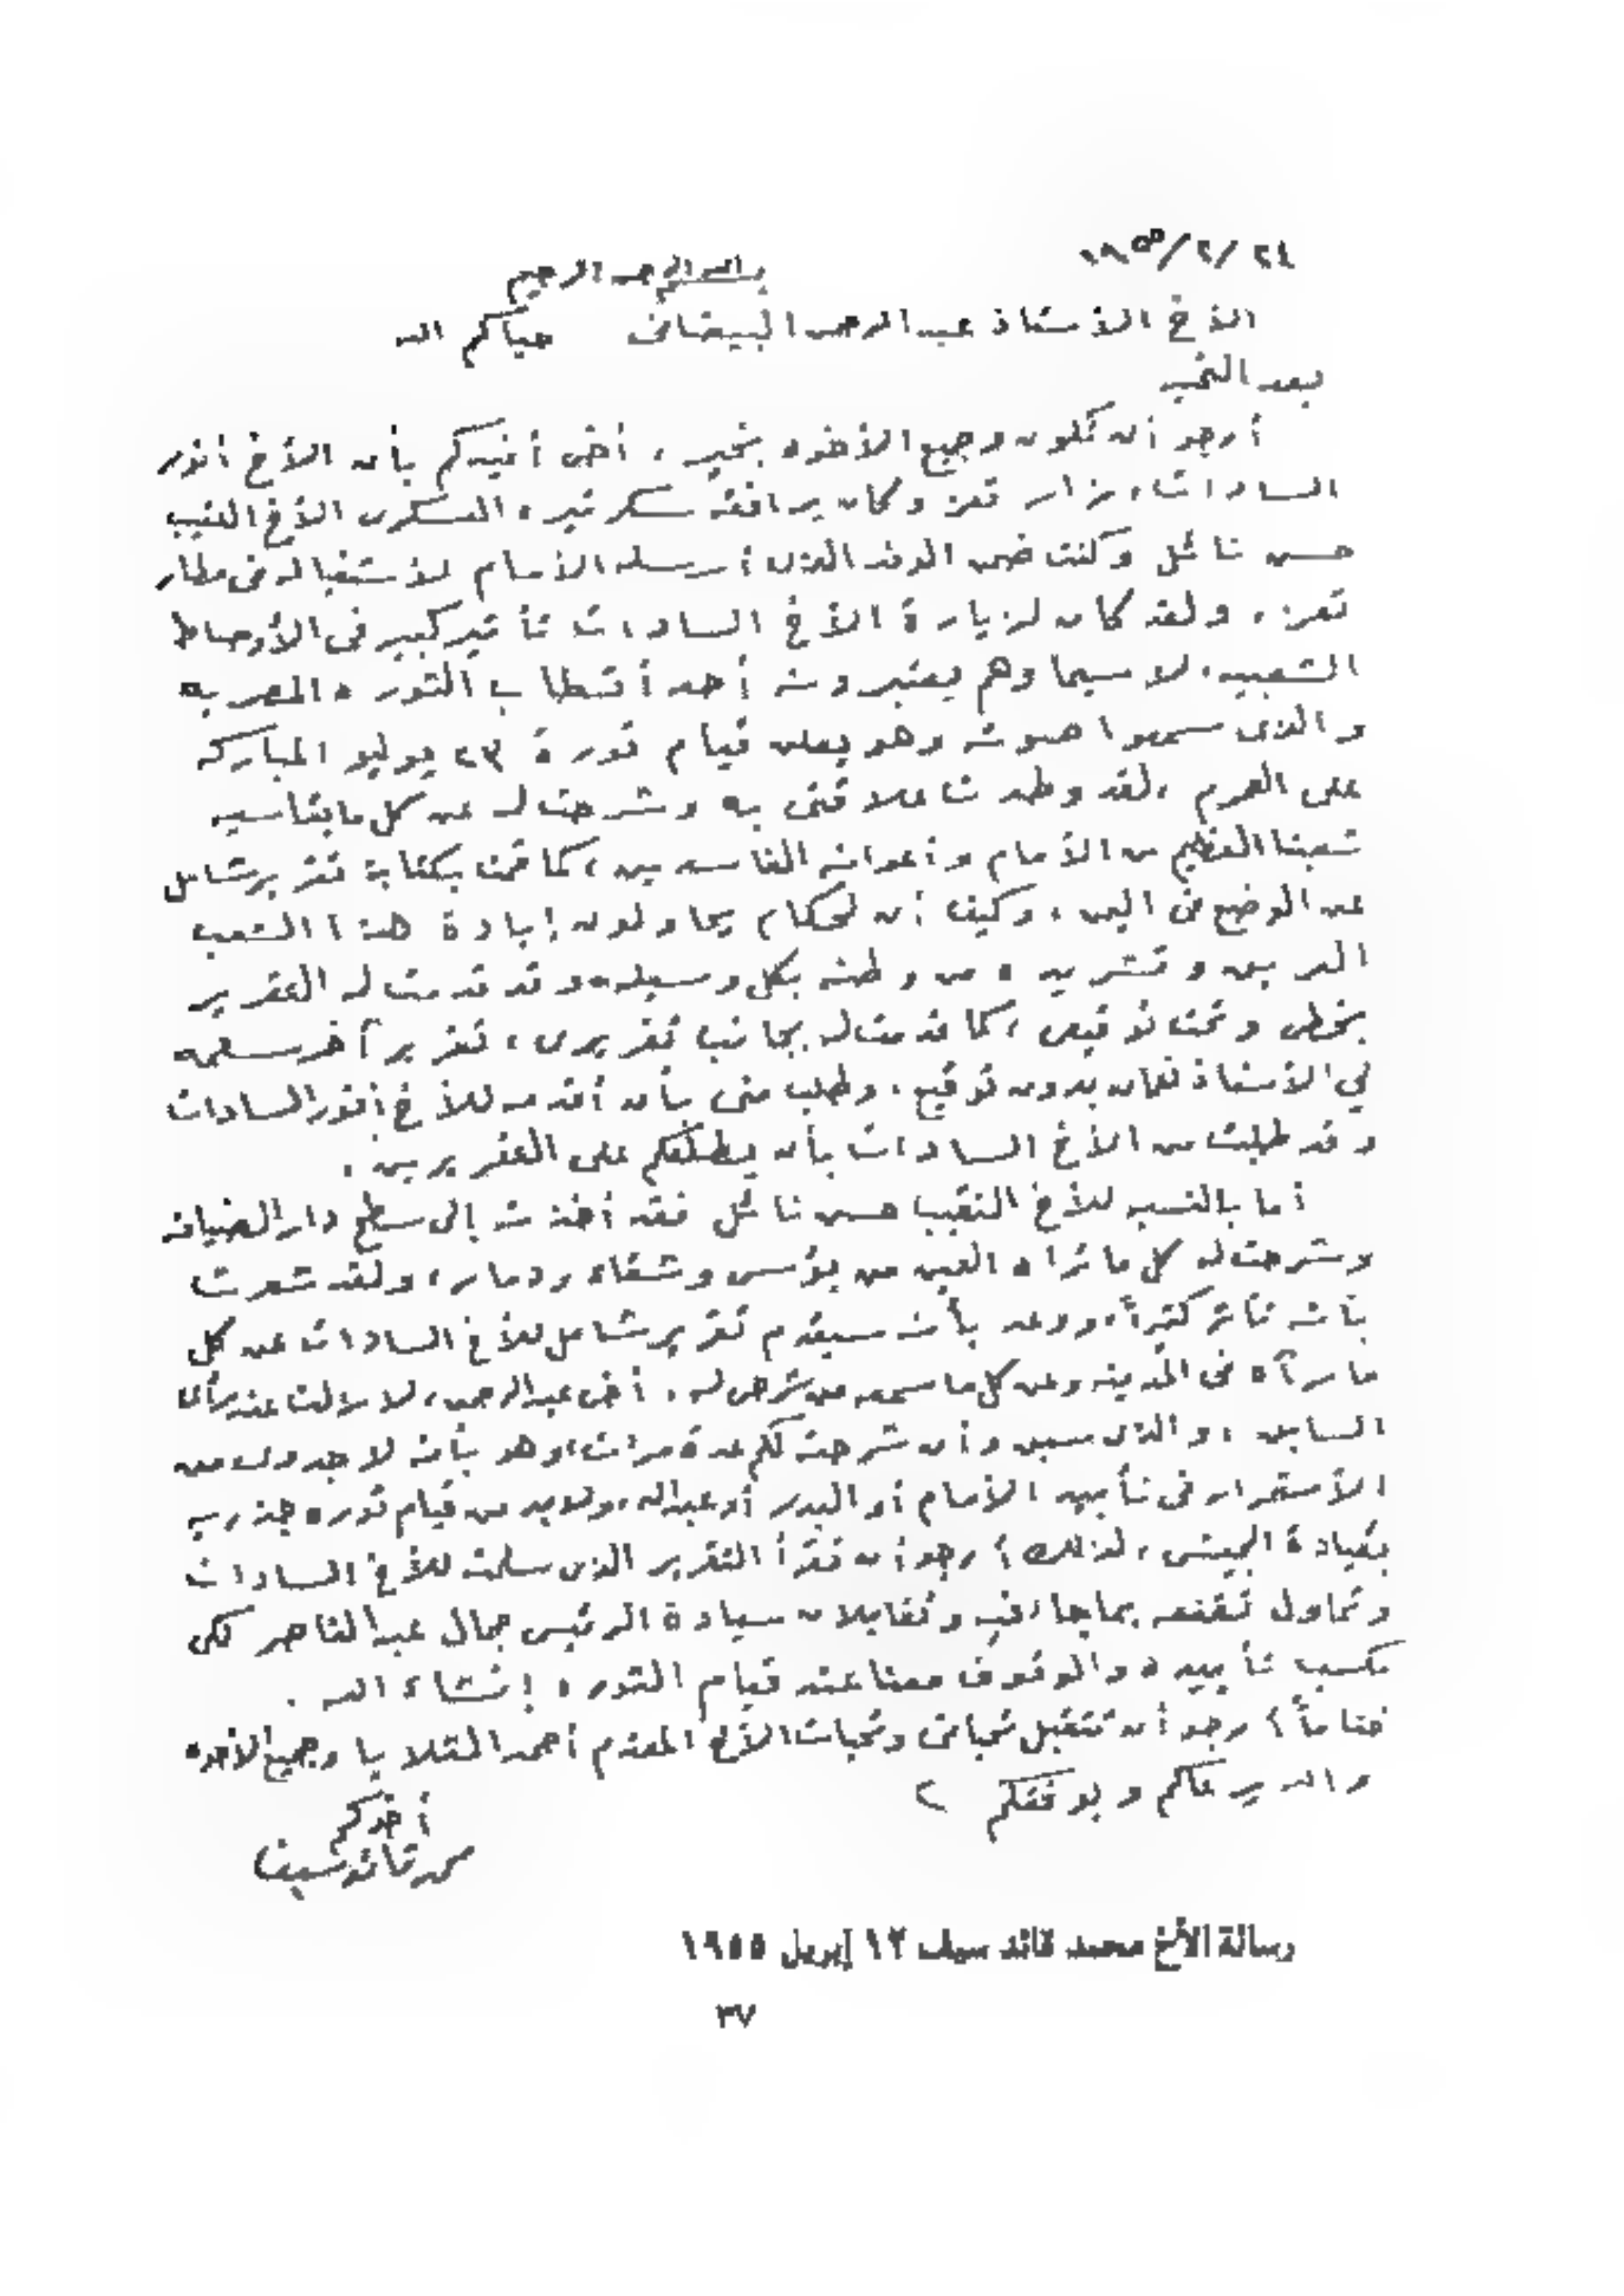 ٢٤/٢/١٩٥٥
بسم الله الرحمن الرحيم
الأخ الأستاذ عبدالرحمن البيضانى حياكم الله
بعد التحيه
أرجو أن تكون وجميع الأخوه بخير ، أخى أفيدكم بأن الأخ أنور
السادات زار تعز وكان يرافقه سكرتيره العسكرى الأخ النقيب
حسن نائل وكنت ضمن الوفد الذى أرسله الأمام لأستقباله فى مطار
تعز ، ولقد كان لزيارة الأخ السادات تأثير كبير فى الأوساط
الشعبيه لا سيما وهم يعتبرونه أحد أقطاب الثوره المصريه
والذى سمعوا صوته وهو يعلن قيام ثورة ٢٣ يوليو المباركه
على الهرم ، لقد وطدت علاقتى به وشرحت له عن كل ما يقاسيه
شعبنا العظيم من الأمام وأعوانه الفاسدين ، كما قمت بكتابة تقرير شامل
عن الوضع فى اليمن ، وكيف أن الحكام يحاولون إبادة هذا الشعب
العربى وتشريده من وطنه بكل وسيله وقد قدمت له التقرير
بخطى وتحت توقيعى ، كما قدمت له بجانب تقريرى ، تقرير آخر سلمه
لي الأستاذ نعمان بدون توقيع ، وطلب منى بأن أقدمه للأخ أنور السادات
وقد طلبت من الأخ السادات بأن يطلعكم على التقريرين .
أما بالنسبه للأخ النقيب حسن نائل فقد أخذته إلى سطح دار الضيافه
وشرحت له كل ما تراه العين من بؤس وشقاء ودمار ، ولقد شعرت
بأنه تأثر كثيراً ووعد بأنه سيقدم تقرير شامل للأخ السادات عن كل
ما رآه فى المدينه وعن كل ما سمعه من شرحى له . أخى عبدالرحمن ، لا زلت عند رأى
السابق ، والذى سبق وأن شرحت لكم عدة مرات ، وهو بأنه لا جدوى من
الأستمرار فى تأييد الأمام أو البدر أو عبدالله ، ولابد من قيام ثوره جذريه
بقيادة الجيش ، لذلك أرجو أن تقرأ التقرير الذى سلمته للأخ السادات
وتحاول تقنعه بما جاء فيه وتقابلان سيادة الرئيس جمال عبدالناصر لكى
نكسب تأييده والوقوف معنا عند قيام الثوره إنشاء الله .
ختاماً أرجو أن تتقبل تحياتى وتحيات الأخ المقدم أحمد الثلايا وجميع الأخوه
والله يرعاكم ويوفقكم
أخوكم
محمد قائد سيف
رسالة الأخ محمد قائد سيف ١٢ إبريل ١٩٥٥
٣٧